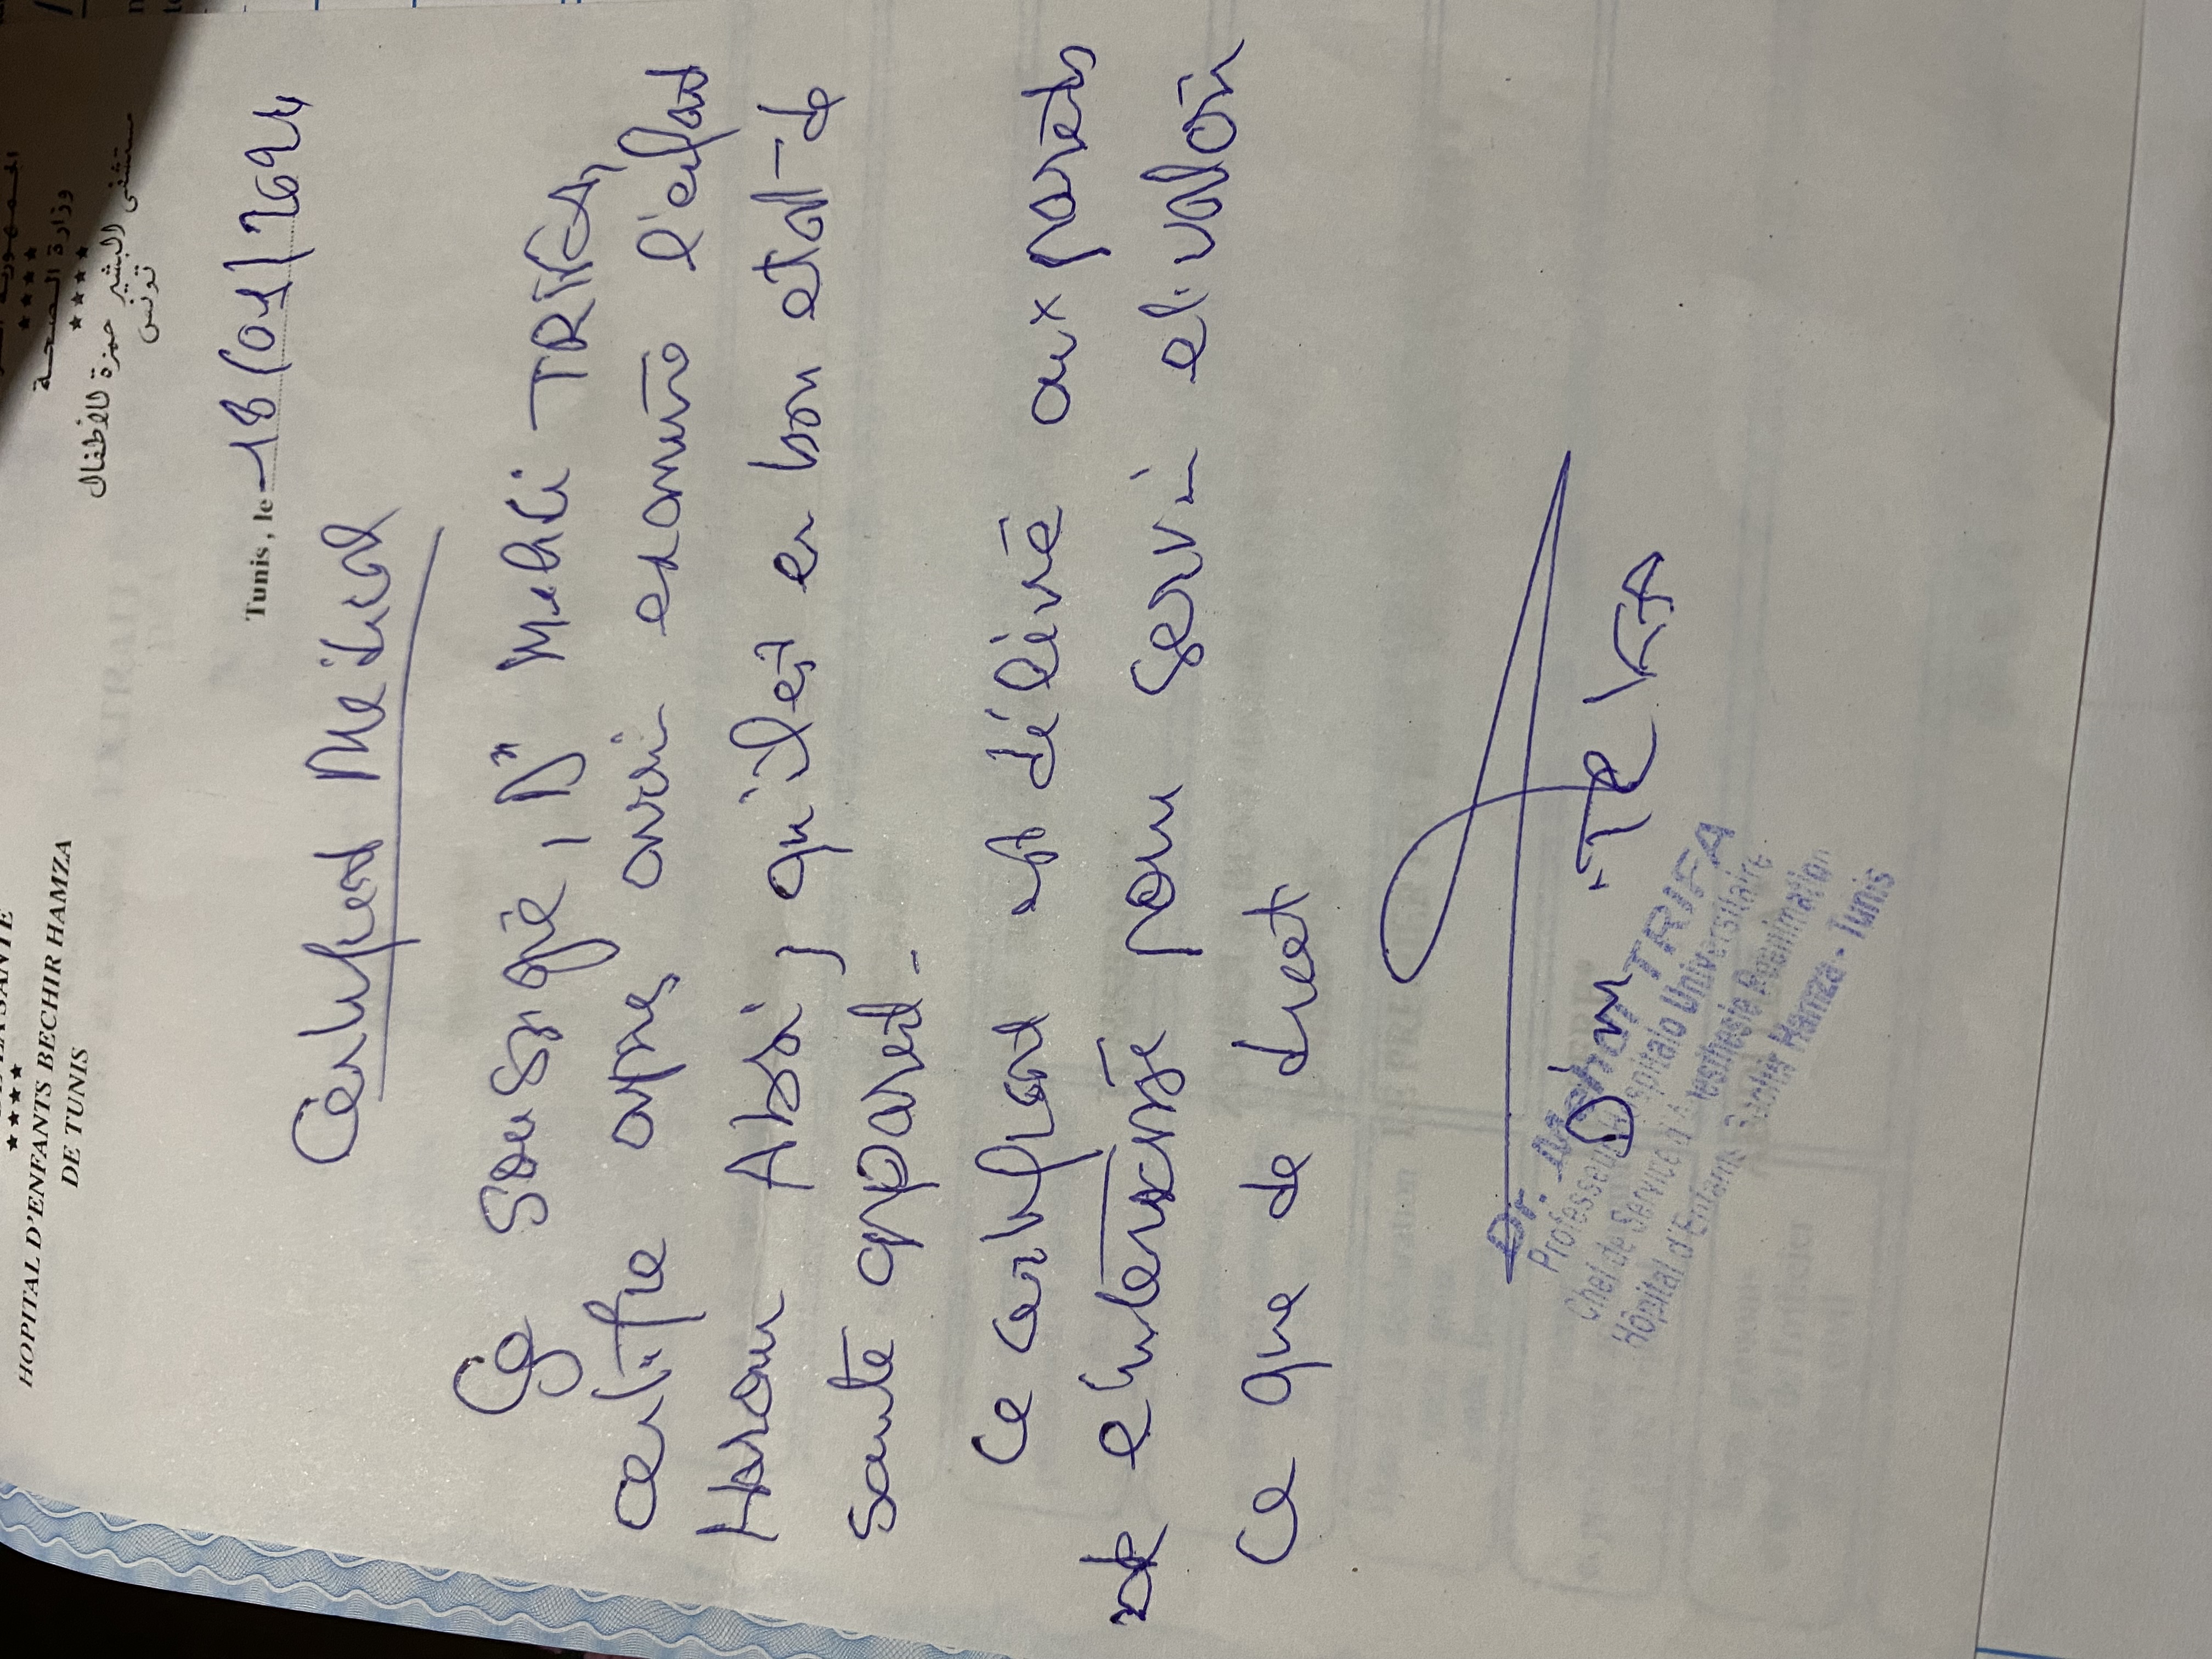 DE LA SANTE
★★★★
HOPITAL D'ENFANTS BECHIR HAMZA
DE TUNIS
★★★★
وزارة الصحة
★★★★
مستشفى البشير حمزة للأطفال
تونس
Tunis, le 18/01/2024
Certificat Médical
Je soussigné, Dr Mehdi TRIFA,
certifie après avoir examiné l'enfant
Haroun Absi, qu'il est en bon état de
santé apparent.
Ce certificat est délivré aux parents
de l'intéressé pour servir et valoir
ce que de droit
Dr TRIFA
Dr. Mehdi TRIFA
Professeur Hospitalo Universitaire
Chef de Service d'Anesthésie Réanimation
Hôpital d'Enfants Béchir Hamza - Tunis